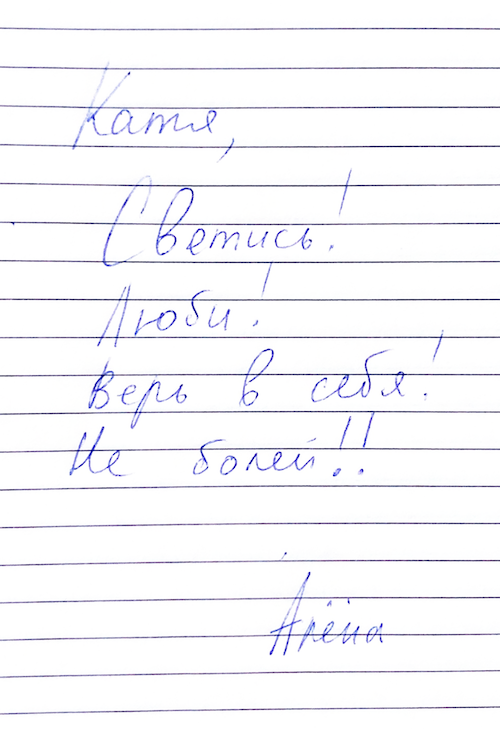 Катя,
Светись!
Люби!
Верь в себя!
Не болей!!
Алёна